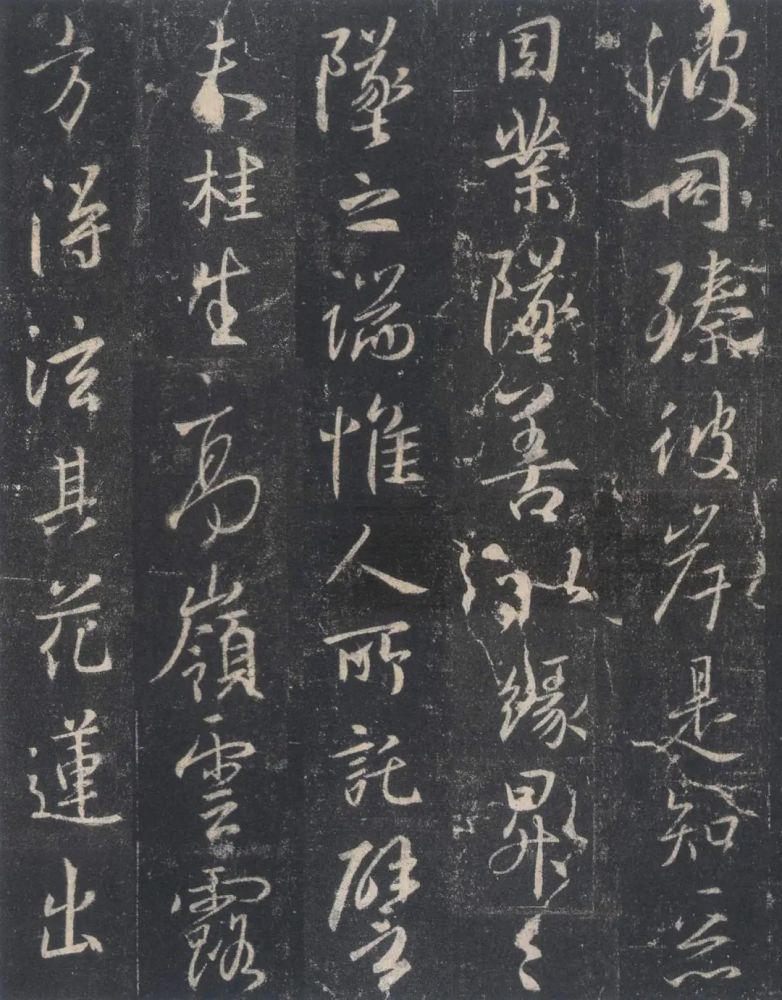 波同臻彼岸是知惡
因業墜善以緣昇々
墜之端惟人所託譬
夫桂生高嶺雲露
方得泫其花蓮出